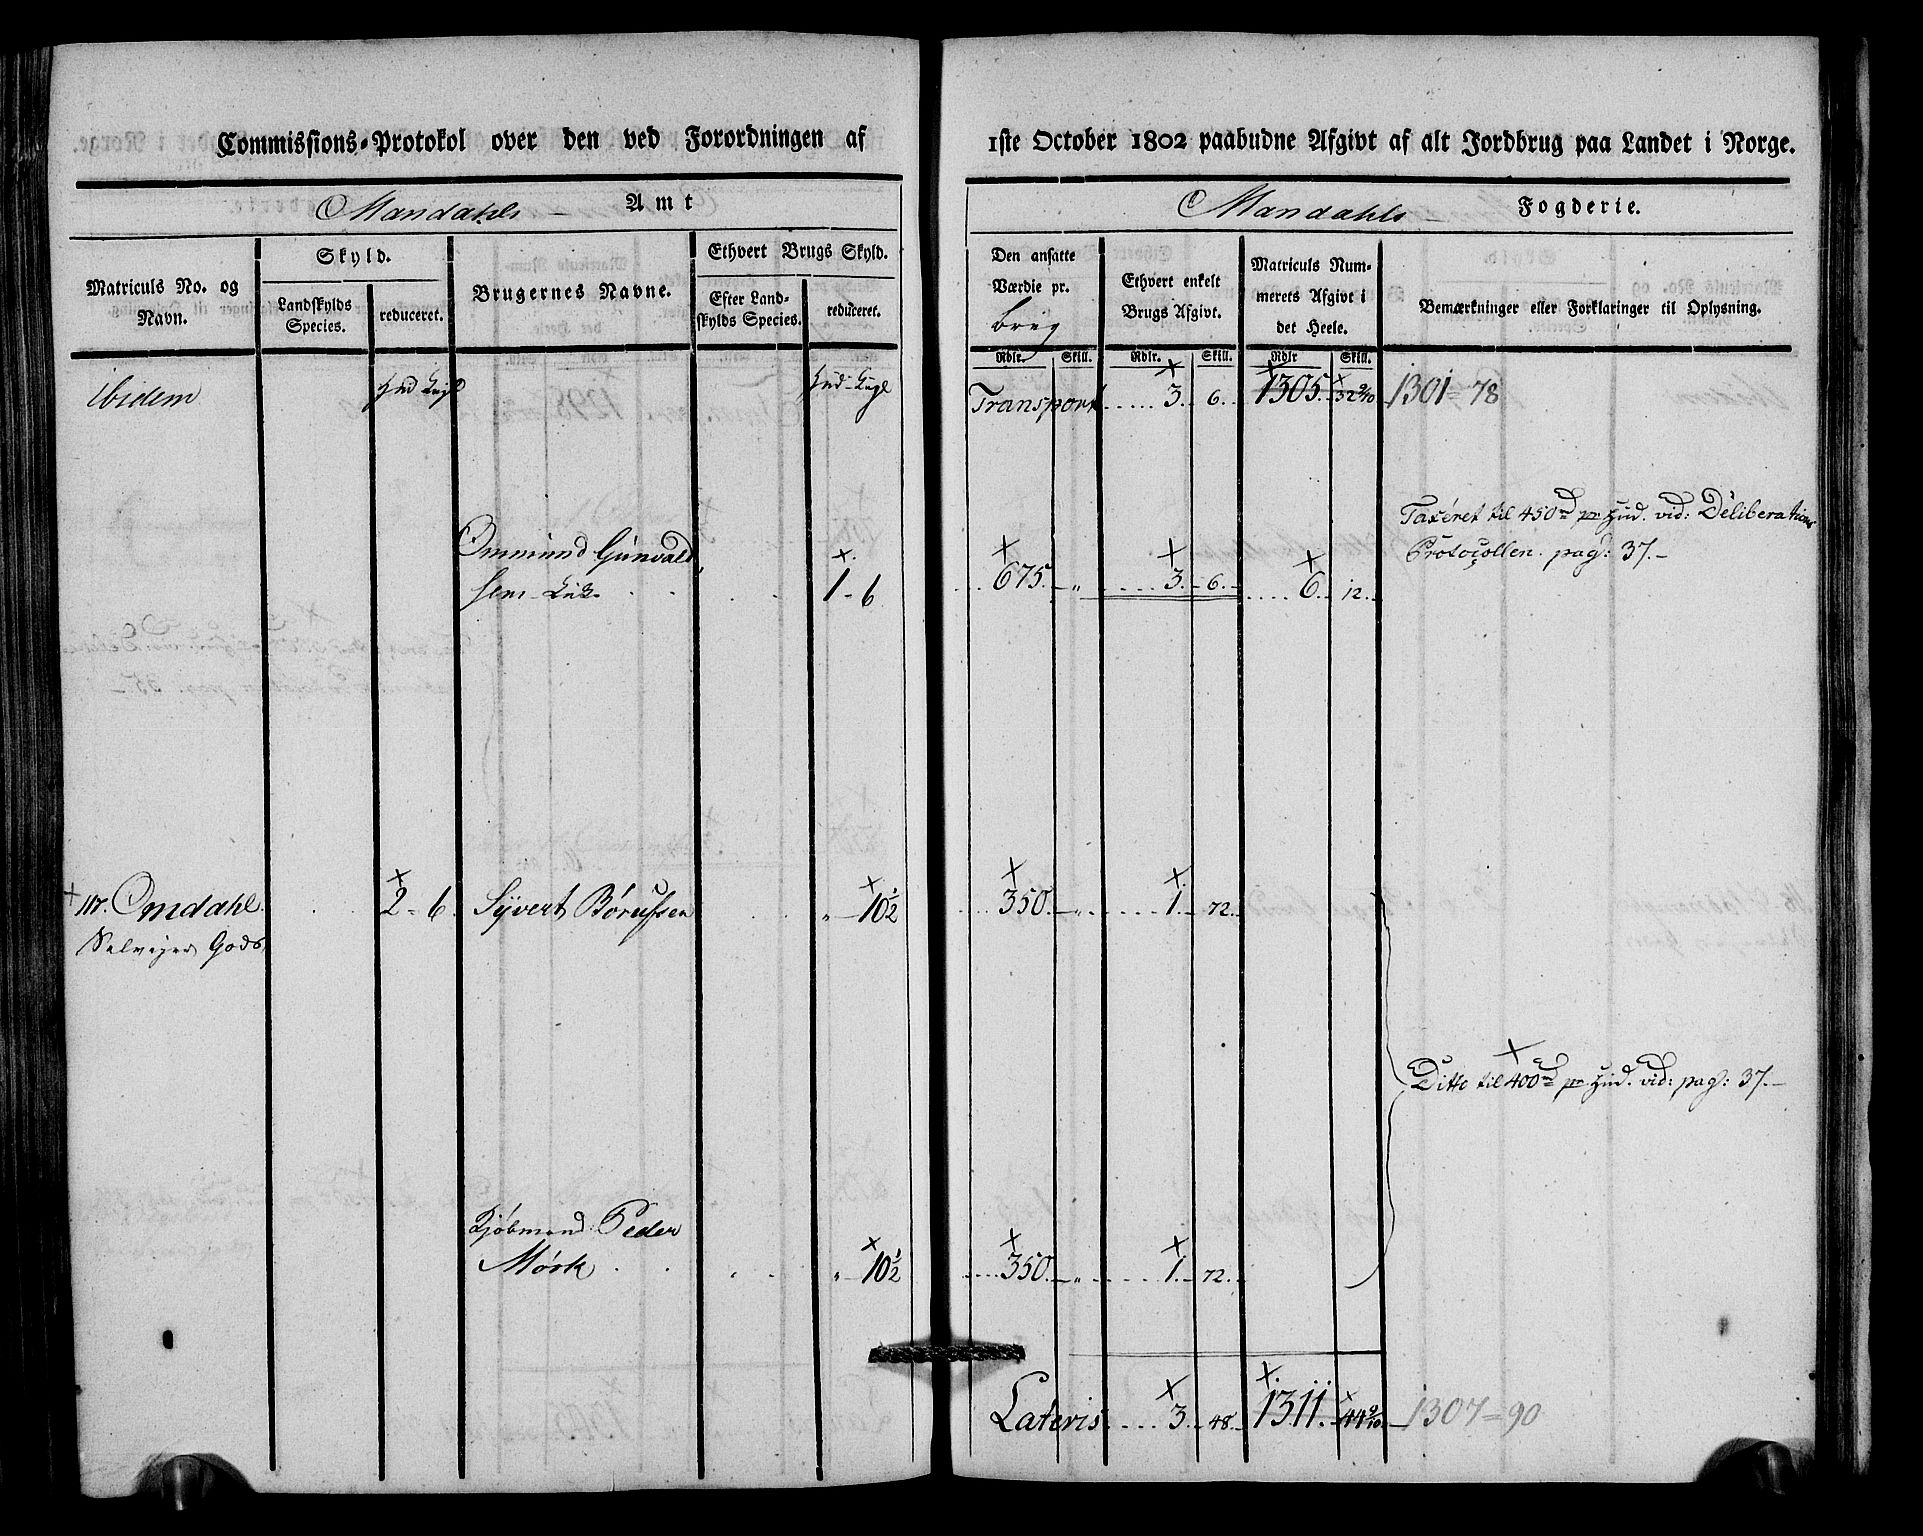 Commissions-Protokol over den ved Forordningen af
1ste October 1802 paabudne Afgivt af alt Jordbrug paa Landet i Norge.
Mandahls Amt
Mandahls Fogderie.
Matriculs No. og Navn.
Skyld.
Landskylds Species.
reduceret.
Brugernes Navne.
Ethvert Brugs Skyld.
Efter Land-
skylds Species.
reduceret.
Den ansatte
Værdie pr.
brug
Ethvert enkelt
Brugs Afgivt.
Matriculs Num-
merets Afgivt i
det Heele.
Bemærkninger eller Forklaringer til Oplysning.
Rdlr. Skill. Rdlr. Skill. Rdlr Skill.
ibidem
Transport 3. 6. 1305. 32 9/10 1301 = 78
Ommund Gunvald
sen 1 - 6 675. - „ 3. - 6. - 6. 12.
Taxeret til 450 rd pr Hud. vid: Deliberations
Protocollen. pag: 37. -
117. Omdahl. 2 - 6. Syvert Børufsen „ - 10½ 350. - „ 1. - 72.
Selvejer Gods
Ditto til 400 rd pr Hud. vid: pag: 37. -
Kjøbmand: Peder
Mørk „ - 10½ 350. - „ 1. - 72.
Lateris 3. 48. - 1311. 44 9/10 1307 = 90